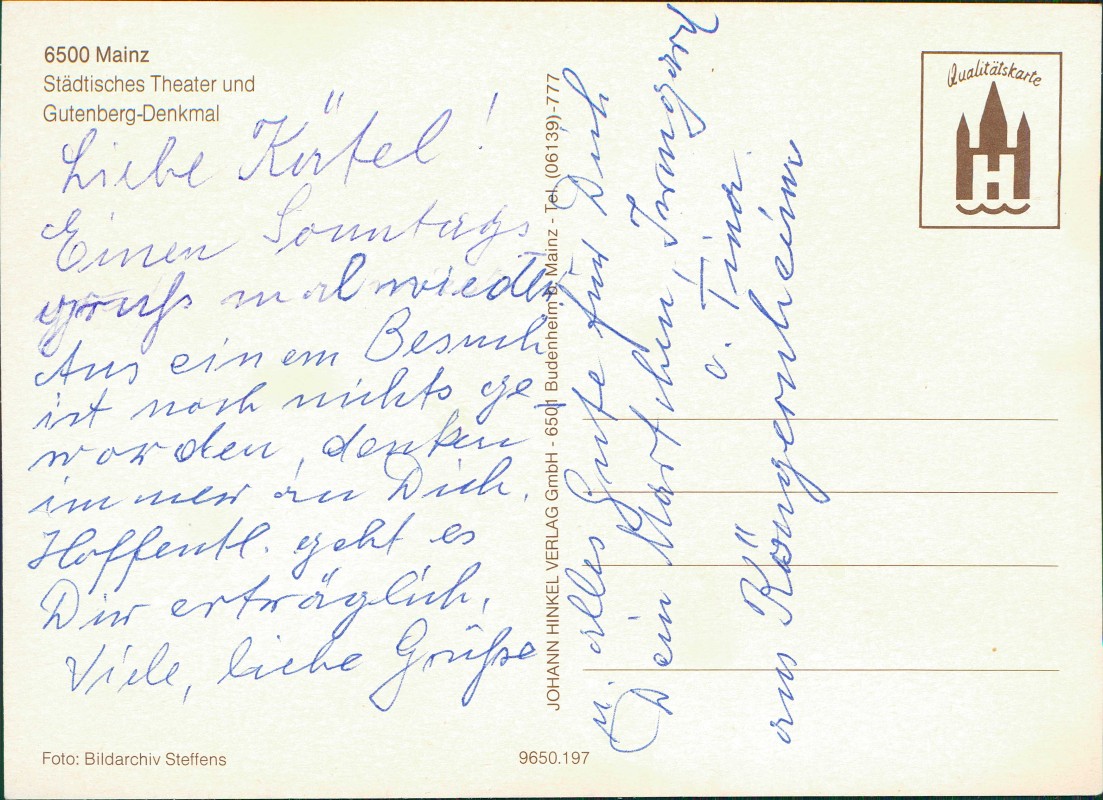 6500 Mainz
Städtisches Theater und
Gutenberg-Denkmal
Liebe Kätel!
Einen Sonntags
gruß mal wieder
Aus einem Besuch
ist noch nichts ge
worden, denken
immer an Dich.
Hoffentl. geht es
Dir erträglich.
Viele, liebe Grüße
u. alles Gute für Dich
Dein Martchen, Irmgard
u. Tina.
aus
JOHANN HINKEL VERLAG GmbH - 6501 Budenheim b. Mainz - Tel. (06139)-777
Qualitätskarte
H
Foto: Bildarchiv Steffens
9650.197